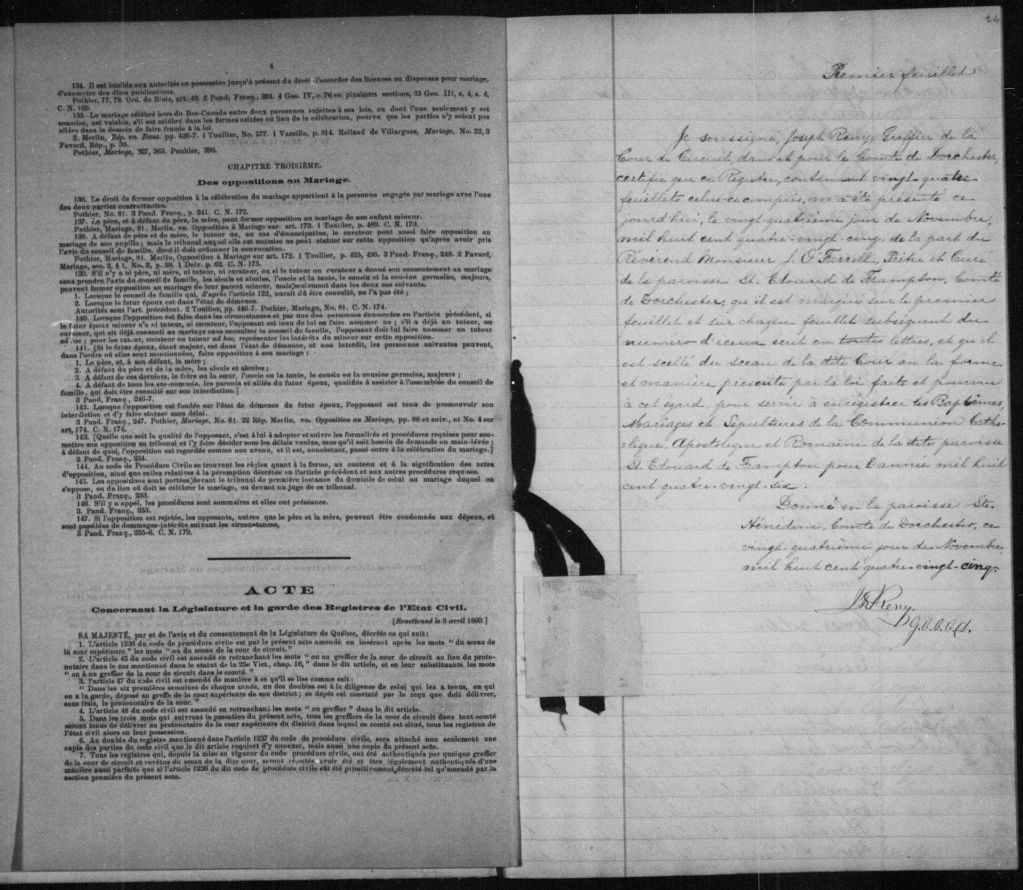 4
134. Il est loisible aux autorités en possession jusqu'à présent du droit d'accorder des licences ou dispenses pour mariage,
d'exempter des dites publications.
Pothier, 77, 78. Ord. de Blois, art. 40. 2 Pand. Franç., 324. 4 Geo. IV, c. 76 en plusieurs sections, 35 Geo. III, c. 4, s. 4,
C. N. 169.
135. Le mariage célébré hors du Bas-Canada entre deux personnes sujettes à ses lois, ou dont l'une seulement y est
soumise, est valable, s'il est célébré dans les formes usitées au lieu de la célébration, pourvu que les parties n'y soient pas
allées dans le dessein de faire fraude à la loi.
2. Merlin, Rép. vo. Bans. pp. 436-7. 1 Toullier, No. 577. 1 Vazille, p. 314. Rolland de Villargues, Mariage, No. 22, 3
Favard, Rép., p. 39.
Pothier, Mariage, 327, 363. Poubler, 390.
CHAPITRE TROISIÈME.
Des oppositions au Mariage.
136. Le droit de former opposition à la célébration du mariage appartient à la personne engagée par mariage avec l'une
des deux parties contractantes.
Pothier, No. 81. 3 Pand. Franç., p. 241. C. N. 172.
137. Le père, et à défaut du père, la mère, peut former opposition au mariage de son enfant mineur.
Pothier, Mariage, 81. Merlin, vo. Opposition à Mariage sur. art. 173. 1 Toullier, p. 489. C. N. 173.
138. A défaut de père et de mère, le tuteur ou, au cas d'émancipation, le curateur peut aussi faire opposition au
mariage de son pupille; mais le tribunal auquel elle est soumise ne peut statuer sur cette opposition qu'après avoir pris
l'avis du conseil de famille, dont il doit ordonner la convocation.
Pothier, Mariage, 81. Merlin, Opposition à Mariage sur art. 172. 1 Toullier, p. 425, 490. 3 Pand. Franç., 248. 2 Favard,
Mariage, sec. 2, § 1, No. 3, p. 59. 1 Delv. p. 62. C. N. 175.
139. S'il n'y a ni père, ni mère, ni tuteur, ni curateur, ou si le tuteur ou curateur a donné son consentement au mariage
sans prendre l'avis du conseil de famille, les aïeuls et aïeules, l'oncle et la tante, le cousin et la cousine germains, majeurs,
peuvent former opposition au mariage de leur parent mineur, mais seulement dans les deux cas suivants.
1. Lorsque le conseil de famille qui, d'après l'article 122, aurait dû être consulté, ne l'a pas été;
2. Lorsque le futur époux est dans l'état de démence.
Autorités sous l'art. précédent. 2 Toullier, pp. 446-7. Pothier, Mariage, No. 81. C. N. 174.
140. Lorsque l'opposition est faite dans les circonstances et par une des personnes énumérées en l'article précédent, si
le futur époux mineur n'a ni tuteur, ni curateur, l'opposant est tenu de lui en faire nommer un; s'il a déjà un tuteur, ou
curateur, qui ait déjà consenti au mariage sans consulter le conseil de famille, l'opposant doit lui faire nommer un tuteur
ad hoc; pour les tuteur, curateur ou tuteur ad hoc, représenter les intérêts du mineur sur cette opposition.
141. [Si le futur époux, étant majeur, est dans l'état de démence, et non interdit, les personnes suivantes peuvent,
dans l'ordre où elles sont mentionnées, faire opposition à son mariage:
1. Le père, et, à son défaut, la mère;
2. A défaut du père et de la mère, les aïeuls et aïeules;
3. A défaut de ces derniers, le frère ou la sœur, l'oncle ou la tante, le cousin ou la cousine germains, majeurs;
4. A défaut de tous les sus-nommés, les parents et alliés du futur époux, qualifiés à assister à l'assemblée du conseil de
famille, qui doit être consulté sur son interdiction.]
3 Pand. Franç., 246-7.
142. Lorsque l'opposition est fondée sur l'état de démence du futur époux, l'opposant est tenu de promouvoir son
interdiction et d'y faire statuer sans délai.
3 Pand. Franç., 247. Pothier, Mariage, No. 81. 22 Rép. Merlin, vo. Opposition au Mariage, pp. 86 et suiv., et No. 4 sur
art, 174. C. N. 174.
143. [Quelle que soit la qualité de l'opposant, c'est à lui à adopter et suivre les formalités et procédures requises pour sou-
mettre son opposition au tribunal et l'y faire décider sous les délais voulus, sans qu'il soit besoin de demande en main-levée;
à défaut de quoi, l'opposition est regardée comme non avenu, et il est, nonobstant, passé outre à la célébration du mariage.]
3 Pand. Franç., 254.
144. Au code de Procédure Civile se trouvent les règles quant à la forme, au contenu et à la signification des actes
d'opposition, ainsi que celles relatives à la péremption décrétée en l'article précédent et aux autres procédures requises.
145. Les oppositions sont portées devant le tribunal de première instance du domicile de celui au mariage duquel on
s'oppose, ou du lieu où doit se célébrer le mariage, ou devant un juge de ce tribunal.
3 Pand. Franç., 253.
146. S'il y a appel, les procédures sont sommaires et elles ont préséance.
3. Pand. Franç., 253.
147. Si l'opposition est rejetée, les opposants, autres que le père et la mère, peuvent être condamnés aux dépens, et
sont passibles de dommages-intérêts suivant les circonstances,
3 Pand. Franç., 255-6. C. N. 179.
ACTE
Concernant la Législature et la garde des Registres de l'Etat Civil.
[Sanctionné le 5 avril 1869.]
SA MAJESTÉ, par et de l'avis et du consentement de la Législature de Québec, décrète ce qui suit:
1. L'article 1236 du code de procédure civile est par le présent acte amendé en insérant après les mots "du sceau de
la cour supérieure" les mots "ou du sceau de la cour de circuit."
2. L'article 45 du code civil est amendé en retranchant les mots "ou au greffier de la cour de circuit au lieu du proto-
notaire dans le cas mentionné dans le statut de la 25e Vict., chap. 16," dans le dit article, et en leur substituants les mots
"ou à un greffier de la cour de circuit dans le comté."
3. l'article 47 du code civil est amendé de manière à ce qu'il se lise comme suit:
"Dans les six premières semaines de chaque année, un des doubles est à la diligence de celui qui les a tenus, ou qui
en a la garde, déposé au greffe de la cour supérieure de son district; ce dépôt est constaté par le reçu que doit délivrer,
sans frais, le protonotaire de la cour."
4. L'article 48 du code civil est amendé en retranchant les mots "ou greffier" dans le dit article.
5. Dans les trois mois qui suivront la passation du présent acte, tous les greffiers de la cour de circuit dans tout comté
seront tenus de délivrer au protonotaire de la cour supérieure du district dans lequel ce comté est situé, tous les registres de
l'état civil alors en leur possession.
6. Au double du registre mentionné dans l'article 1237 du code de procédure civile, sera attaché non seulement une
copie des parties du code civil que le dit article requiert d'y annexer, mais aussi une copie du présent acte.
7. Tous les registres qui, depuis la mise en vigueur du code procédure civile, ont été authentiqués par quelque greffier
de la cour de circuit et revêtus du sceau de la dite cour, seront réputés avoir été et être légalement authentiqués d'une
manière aussi parfaite que si l'article 1236 du dit code de procédure civile eût été primitivement décrété tel qu'amendé par la
section première du présent acte.
24
Premier feuillet
Je soussigné, Joseph Remy, Greffier de la
Cour de Circuit, dans et pour le Comté de Dorchester,
certifie que ce Registre, contenant vingt-quatre
feuillets celui-ci compris, m'a été présenté ce
jourd'hui, le vingt-quatrième jour de Novembre,
mil huit cent quatre-vingt-cinq, de la part du
Révérend Monsieur J. O'Farrell, Prêtre et Curé
de la paroisse St. Edouard de Frampton, Comté
de Dorchester, qu'il est marqué sur le premier
feuillet et sur chaque feuillet subséquent du
numéro d'iceux écrit en toutes lettres, et qu'il
est scellé du sceau de la dite Cour en la forme
et manière prescrite par la loi faite et pourvue
à cet égard, pour servir à enregistrer les Baptêmes,
Mariages et Sépultures de la Communion Catho-
lique, Apostolique et Romaine de la dite paroisse
St. Edouard de Frampton pour l'année mil huit
cent quatre-vingt-six.
Donné en la paroisse Ste.
Hénédine, Comté de Dorchester, ce
vingt-quatrième jour de Novembre
mil huit cent quatre-vingt-cinq.